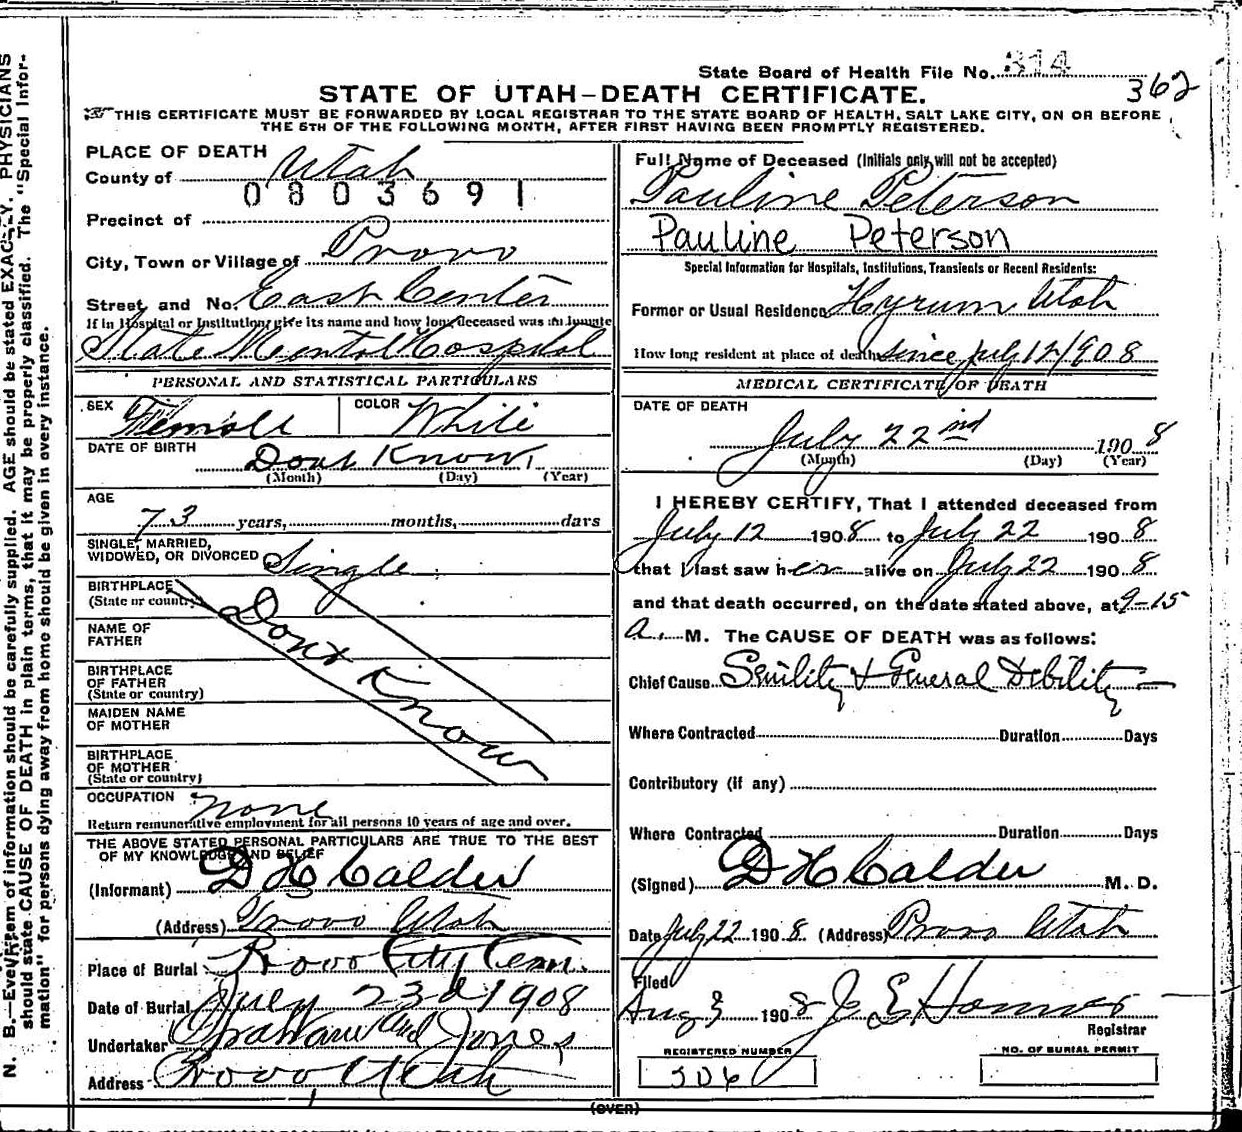 State Board of Health File No. 314
362
STATE OF UTAH—DEATH CERTIFICATE.
THIS CERTIFICATE MUST BE FORWARDED BY LOCAL REGISTRAR TO THE STATE BOARD OF HEALTH, SALT LAKE CITY, ON OR BEFORE
THE 5TH OF THE FOLLOWING MONTH, AFTER FIRST HAVING BEEN PROMPTLY REGISTERED.
PLACE OF DEATH
County of Utah
0803691
Precinct of
City, Town or Village of Provo
Street and No. East Center
If in Hospital or Institution, give its name and how long deceased was an Inmate
State Mental Hospital
PERSONAL AND STATISTICAL PARTICULARS
SEX Female COLOR White
DATE OF BIRTH Dont Know
(Month) (Day) (Year)
AGE
73 years, months, days
SINGLE, MARRIED,
WIDOWED, OR DIVORCED Single
BIRTHPLACE
(State or country)
Dont Know
NAME OF
FATHER
BIRTHPLACE
OF FATHER
(State or country)
MAIDEN NAME
OF MOTHER
BIRTHPLACE
OF MOTHER
(State or country)
OCCUPATION none
Return remunerative employment for all persons 10 years of age and over.
THE ABOVE STATED PERSONAL PARTICULARS ARE TRUE TO THE BEST
OF MY KNOWLEDGE AND BELIEF
(Informant) D H Calder
(Address) Provo Utah
Place of Burial Provo City Cem.
Date of Burial July 23d 1908
Undertaker and Jones
Address Provo Utah
Full Name of Deceased (Initials only will not be accepted)
Pauline Peterson
Pauline Peterson
Special Information for Hospitals, Institutions, Transients or Recent Residents:
Former or Usual Residence Hyrum Utah
How long resident at place of death since July 12/908
MEDICAL CERTIFICATE OF DEATH
DATE OF DEATH
July 22nd 1908
(Month) (Day) (Year)
I HEREBY CERTIFY, That I attended deceased from
July 12 1908 to July 22 1908
that I last saw her alive on July 22 1908
and that death occurred, on the date stated above, at 9-15
a. M. The CAUSE OF DEATH was as follows:
Chief Cause Senility & General Debility
Where Contracted Duration Days
Contributory (if any)
Where Contracted Duration Days
(Signed) D H Calder M. D.
Date July 22 1908 (Address) Provo Utah
Filed
Aug 3 1908 J E
Registrar
REGISTERED NUMBER
306
NO. OF BURIAL PERMIT
(OVER)
N. B.—Every item of information should be carefully supplied. AGE should be stated EXACTLY. PHYSICIANS
should state CAUSE OF DEATH in plain terms, that it may be properly classified. The "Special Infor-
mation" for persons dying away from home should be given in every instance.